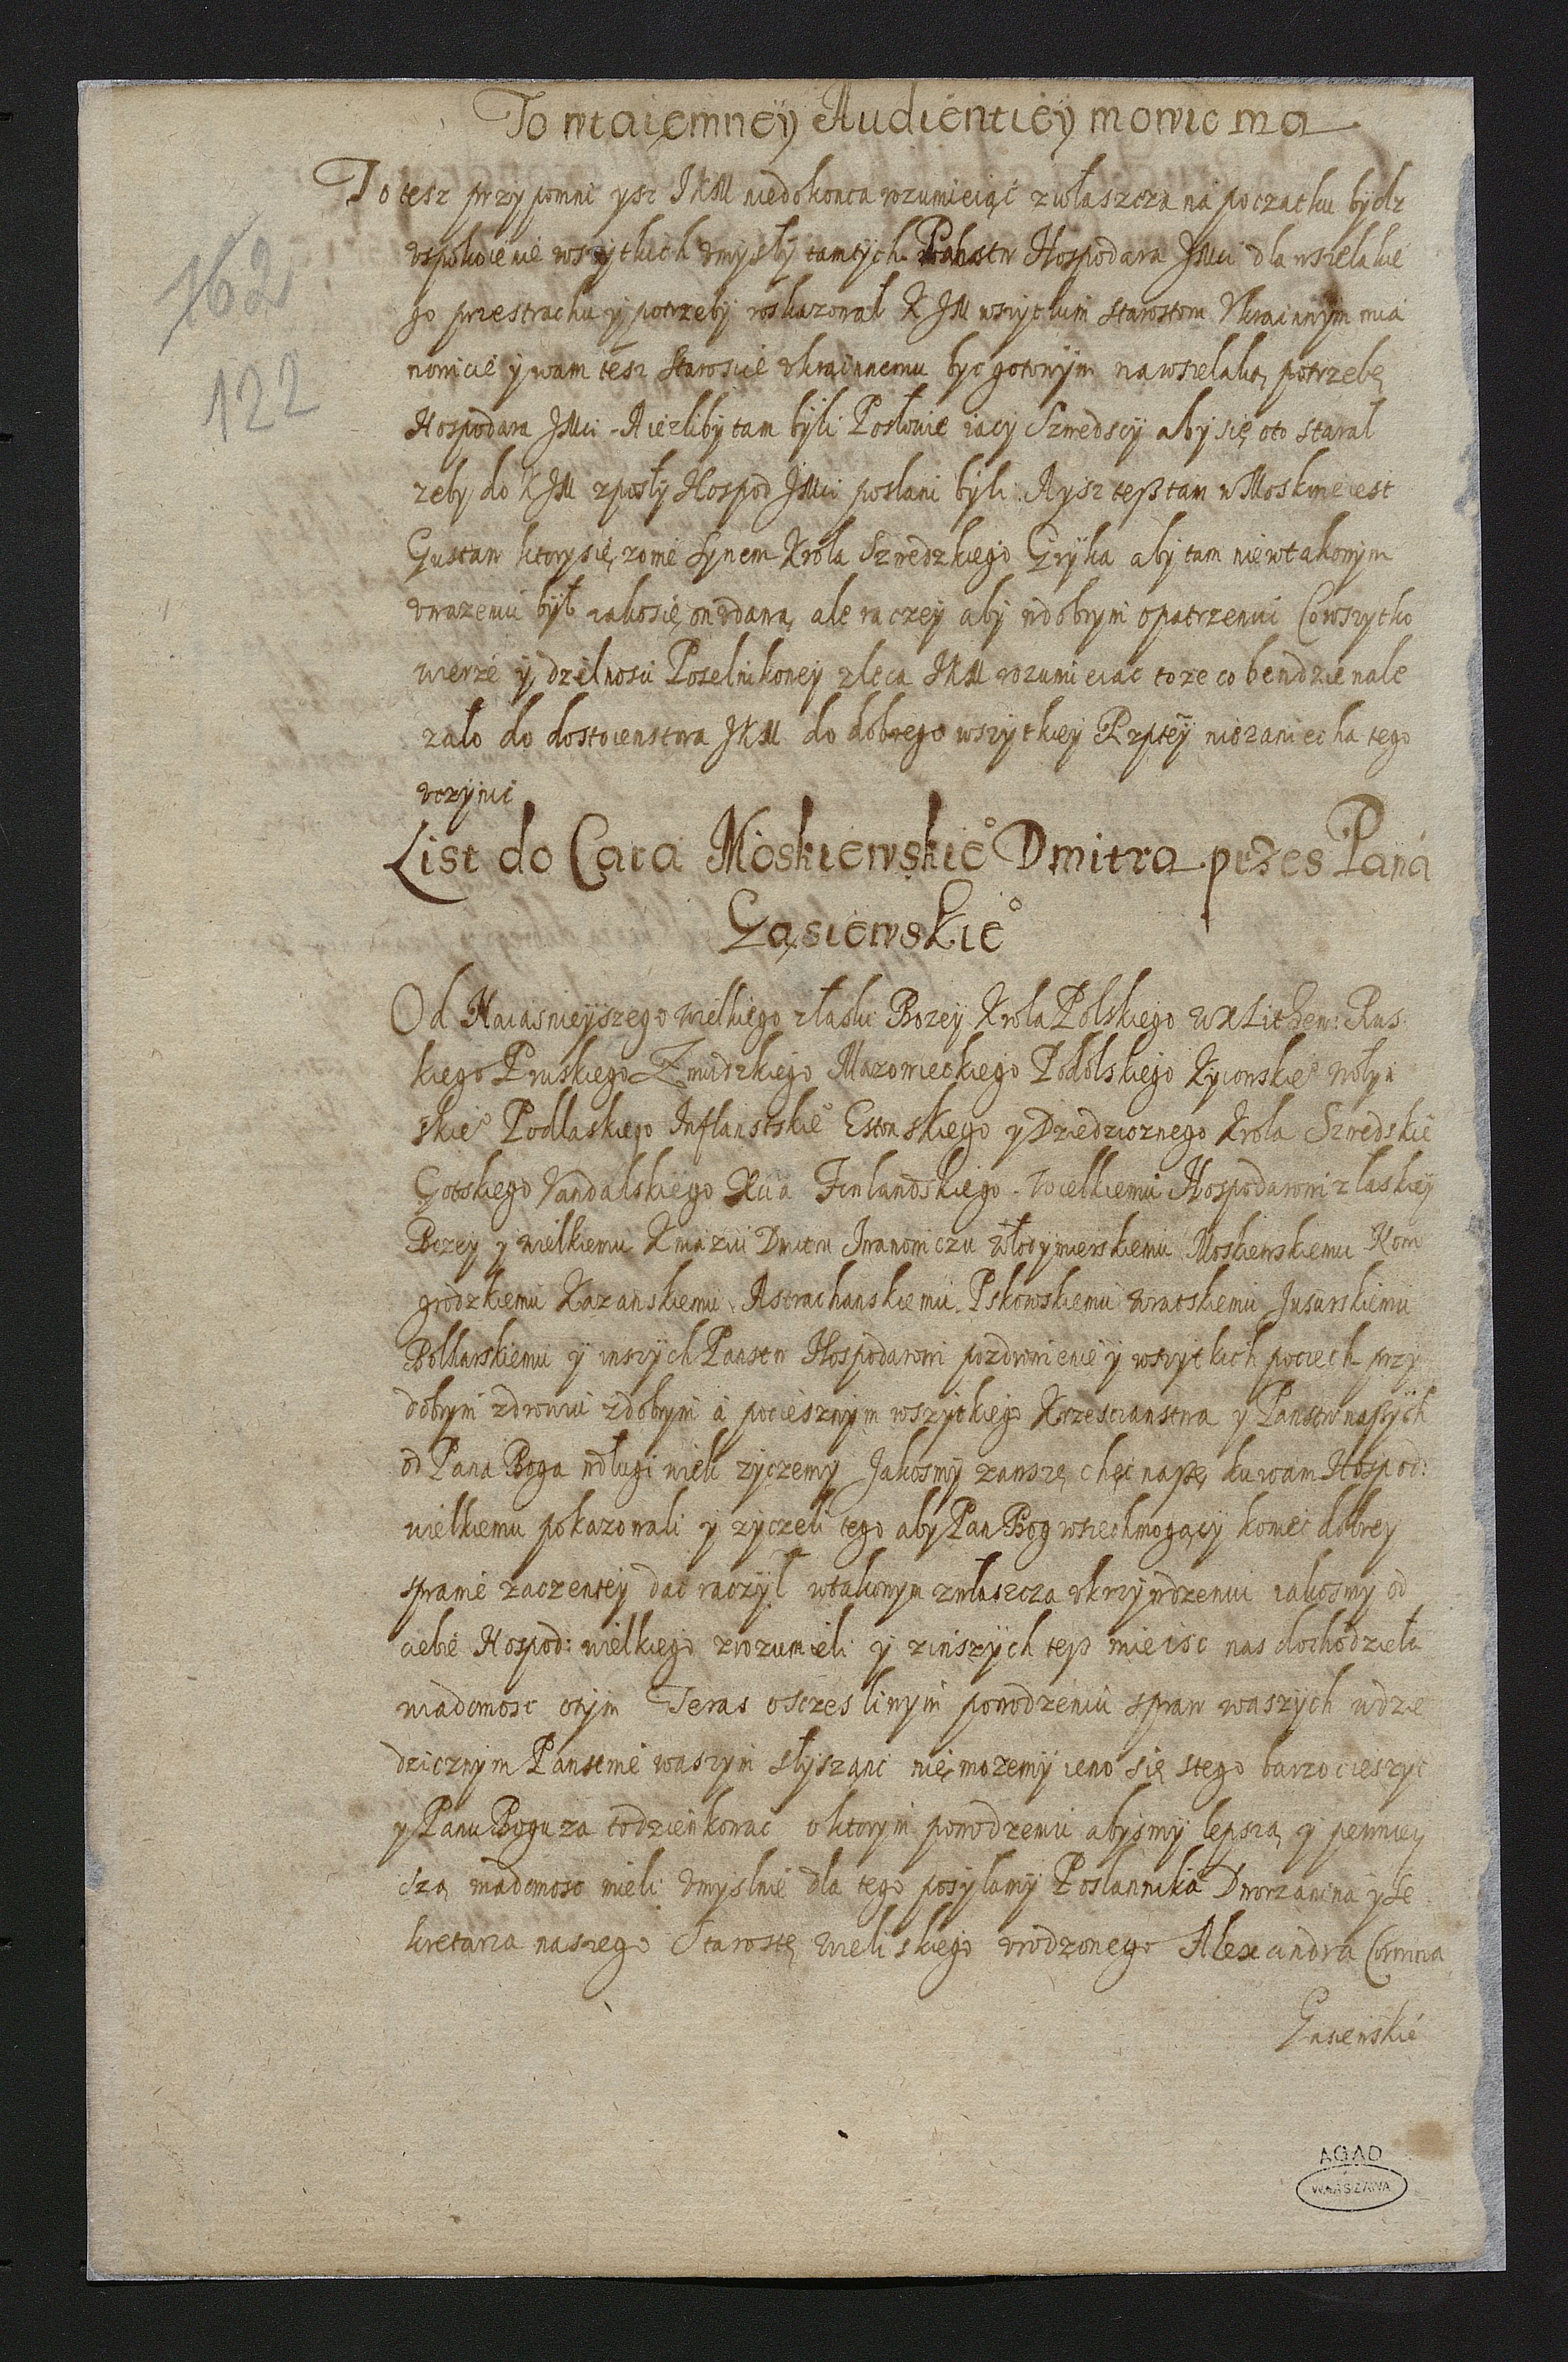 To wtaiemney Audientiey mowic ma
To tesz przypomni ysz JKM niedokonca rozumieiąć zwłaszcza na początku bydz
vspokoienie wszytkich vmysły tamtych Panstw Hospodara JMci dla wszelakie
go przestrachu y potrzeby roskazował K JM wszytkim starostom Vkrainnym mia
nowicie y wam tesz Staroscie vkrainnemu byc gotowym na wszelaką potrzebę
Hospodara JMci. A iezliby tam byli Posłowie iacy Szwedscy aby się oto starał
zeby do K JM zposły Hospod JMci posłani byli. A ysz tesz tam w Moskwie iest
Gustaw ktory się zowie Synem Krola Szwedzkiego Eryka aby tam niewtakowym
vwazeniu był iakosię on vdawa, ale raczey aby wdobrym opatrzeniu Cowszytko
wierze y dzielnosci Poselnikowey zleca JKM rozumieiac to ze co bendzie nale
zało do dostoienstwa JKM do dobrego wszytkiey Rzptey niezaniecha tego
vczynic
List do Cara Moskiewskie° Dmitra przes Pana
Gąsiewskie°
Od Naiasnieyszego wielkiego złaski Bozey Krola Polskiego WXLithew: Rus
kiego Pruskiego Zmudzkiego Mazowieckiego Podolskiego Kyiowskie° Wołyn
skie° Podlaskiego Inflanstskie° Estonskiego y Dziedzicznego Krola Szwedskie
Gotskiego Vandalskiego Xcia Finlandskiego. Wielkiemu Hospodarowi z łaskiey
Bozey y wielkiemu Kniaziu Dmitru Iwanowiczu Włodymierskiemu Moskiewskiemu Now
grodzkiemu Kazanskiemu Astrachanskiemu Pskowskiemu Wiatskiemu Jusurskiemu
Bolkarskiemu y inszych Panstw Hospodarowi pozdrowienie y wszytkich pociech przy
dobrym zdrowiu zdobrym a pociesznym wszytkiego Krzescianstwa y Panstw naszych
od Pana Boga wdługi wieki zyczemy Jakosmy zawsze chęc naszę ku wam Hospod:
wielkiemu pokazowali y zyczeli tego aby Pan Bog wszechmogący koniec dobrey
sprawie zaczentey dac raczył wtakowym zwłaszcza vkrzywdzeniu iakosmy od
ciebie Hospod: wielkiego zrozumieli y zinszych tesz mieisc nas dochodzieła
wiadomosc otym Teras osczesliwym powodzeniu spraw waszych wdzie
dzicznym Panstwie waszym słysząnc nie możemy ieno się stego barzo cieszyc
y Panu Bogu za to dzienkowac o ktorym powodzeniu abysmy lepszą y pewniey
szą wiadomosc mieli vmyslnie dla tego posyłamy Posłannika Dworzanina y Se
kretarza naszego Starostę wieliskiego vrodzonego Alexandra Corwina
Gasiewskie
162
122
AGAD
WARSZAWA